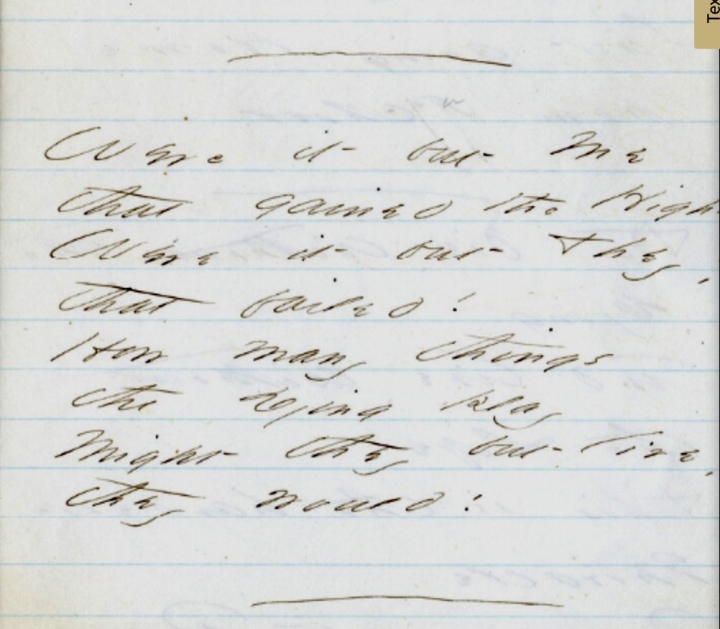 Were it but Me
that gained the High
Were it but They,
that failed!
How many things
the dying play
Might they but live,
they would!